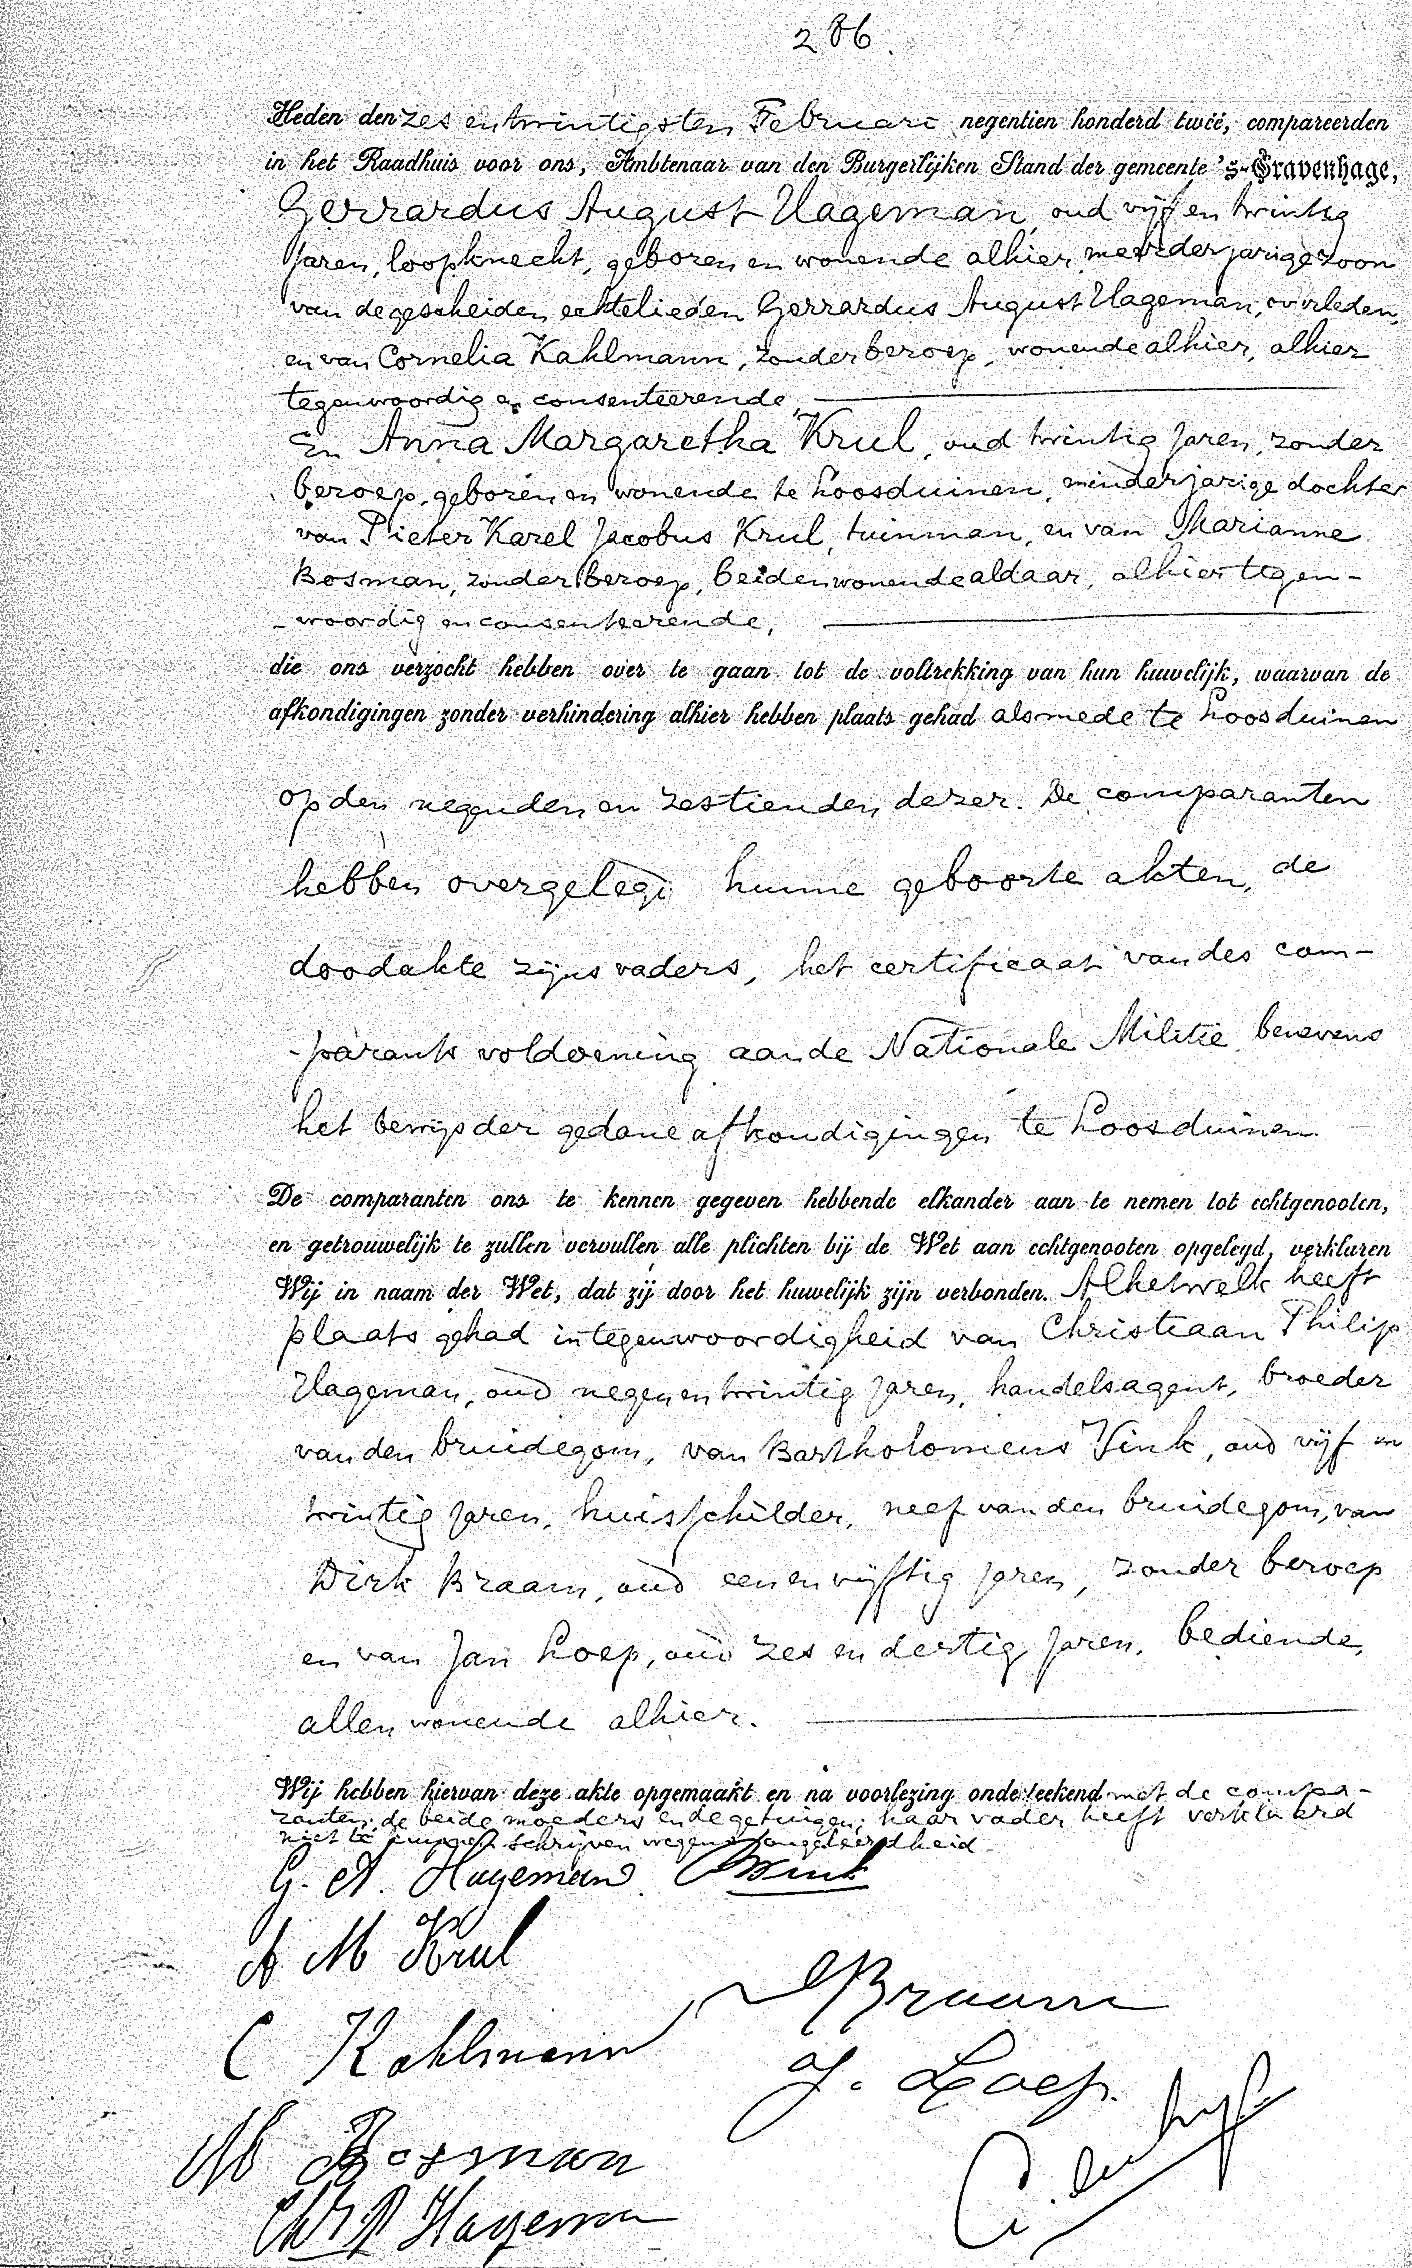 286.
Heden den zes en twintigsten Februari negentien honderd twéé, compareerden
in het Raadhuis voor ons, Ambtenaar van den Burgerlijken Stand der gemeente 's-Gravenhage,
Gerrardus August Hageman, oud vijf en twintig
jaren, loopknecht, geboren en wonende alhier, meerderjarige zoon
van de gescheiden echtelieden Gerrardus August Hageman, overleden,
en van Cornelia Kahlmann, zonder beroep, wonende alhier, alhier
tegenwoordig en consenteerende,
En Anna Margaretha Krul, oud twintig jaren, zonder
beroep, geboren en wonende te Loosduinen, minderjarige dochter
van Pieter Karel Jacobus Krul, tuinman, en van Marianne
Bosman, zonder beroep, beiden wonende aldaar, alhier tegen-
-woordig en consenteerende,
die ons verzocht hebben over te gaan tot de voltrekking van hun huwelijk, waarvan de
afkondigingen zonder verhindering alhier hebben plaats gehad alsmede te Loosduinen
op den negenden en zestienden dezer. De comparanten
hebben overgelegd hunne geboorte akten, de
doodakte zijns vaders, het certificaat van des com-
-parants voldoening aan de Nationale Militie benevens
het bewijs der gedane afkondigingen te Loosduinen.
De comparanten ons te kennen gegeven hebbende elkander aan te nemen tot echtgenooten,
en getrouwelijk te zullen vervullen alle plichten bij de Wet aan echtgenooten opgelegd, verklaren
Wij in naam der Wet, dat zij door het huwelijk zijn verbonden. Al hetwelk heeft
plaats gehad in tegenwoordigheid van Christiaan Philip
Hageman, oud negen en twintig jaren, handelsagent, broeder
van den bruidegom, van Bartholomeus Vink, oud vijf en
twintig jaren, huisschilder, neef van den bruidegom, van
Dirk Braam, oud een en vijftig jaren, zonder beroep
en van Jan Loep, oud zes en dertig jaren, bediende,
allen wonende alhier.
Wij hebben hiervan deze akte opgemaakt en na voorlezing onderteekend met de compa-
ranten, de beide moeders en de getuigen; haar vader heeft verklaard
niet te kunnen schrijven wegens ongeleerdheid.
G. A. Hageman Vink
A M Krul
DBraam
C Kahlmann
J. Loep.
M Bosman
Chr P Hageman